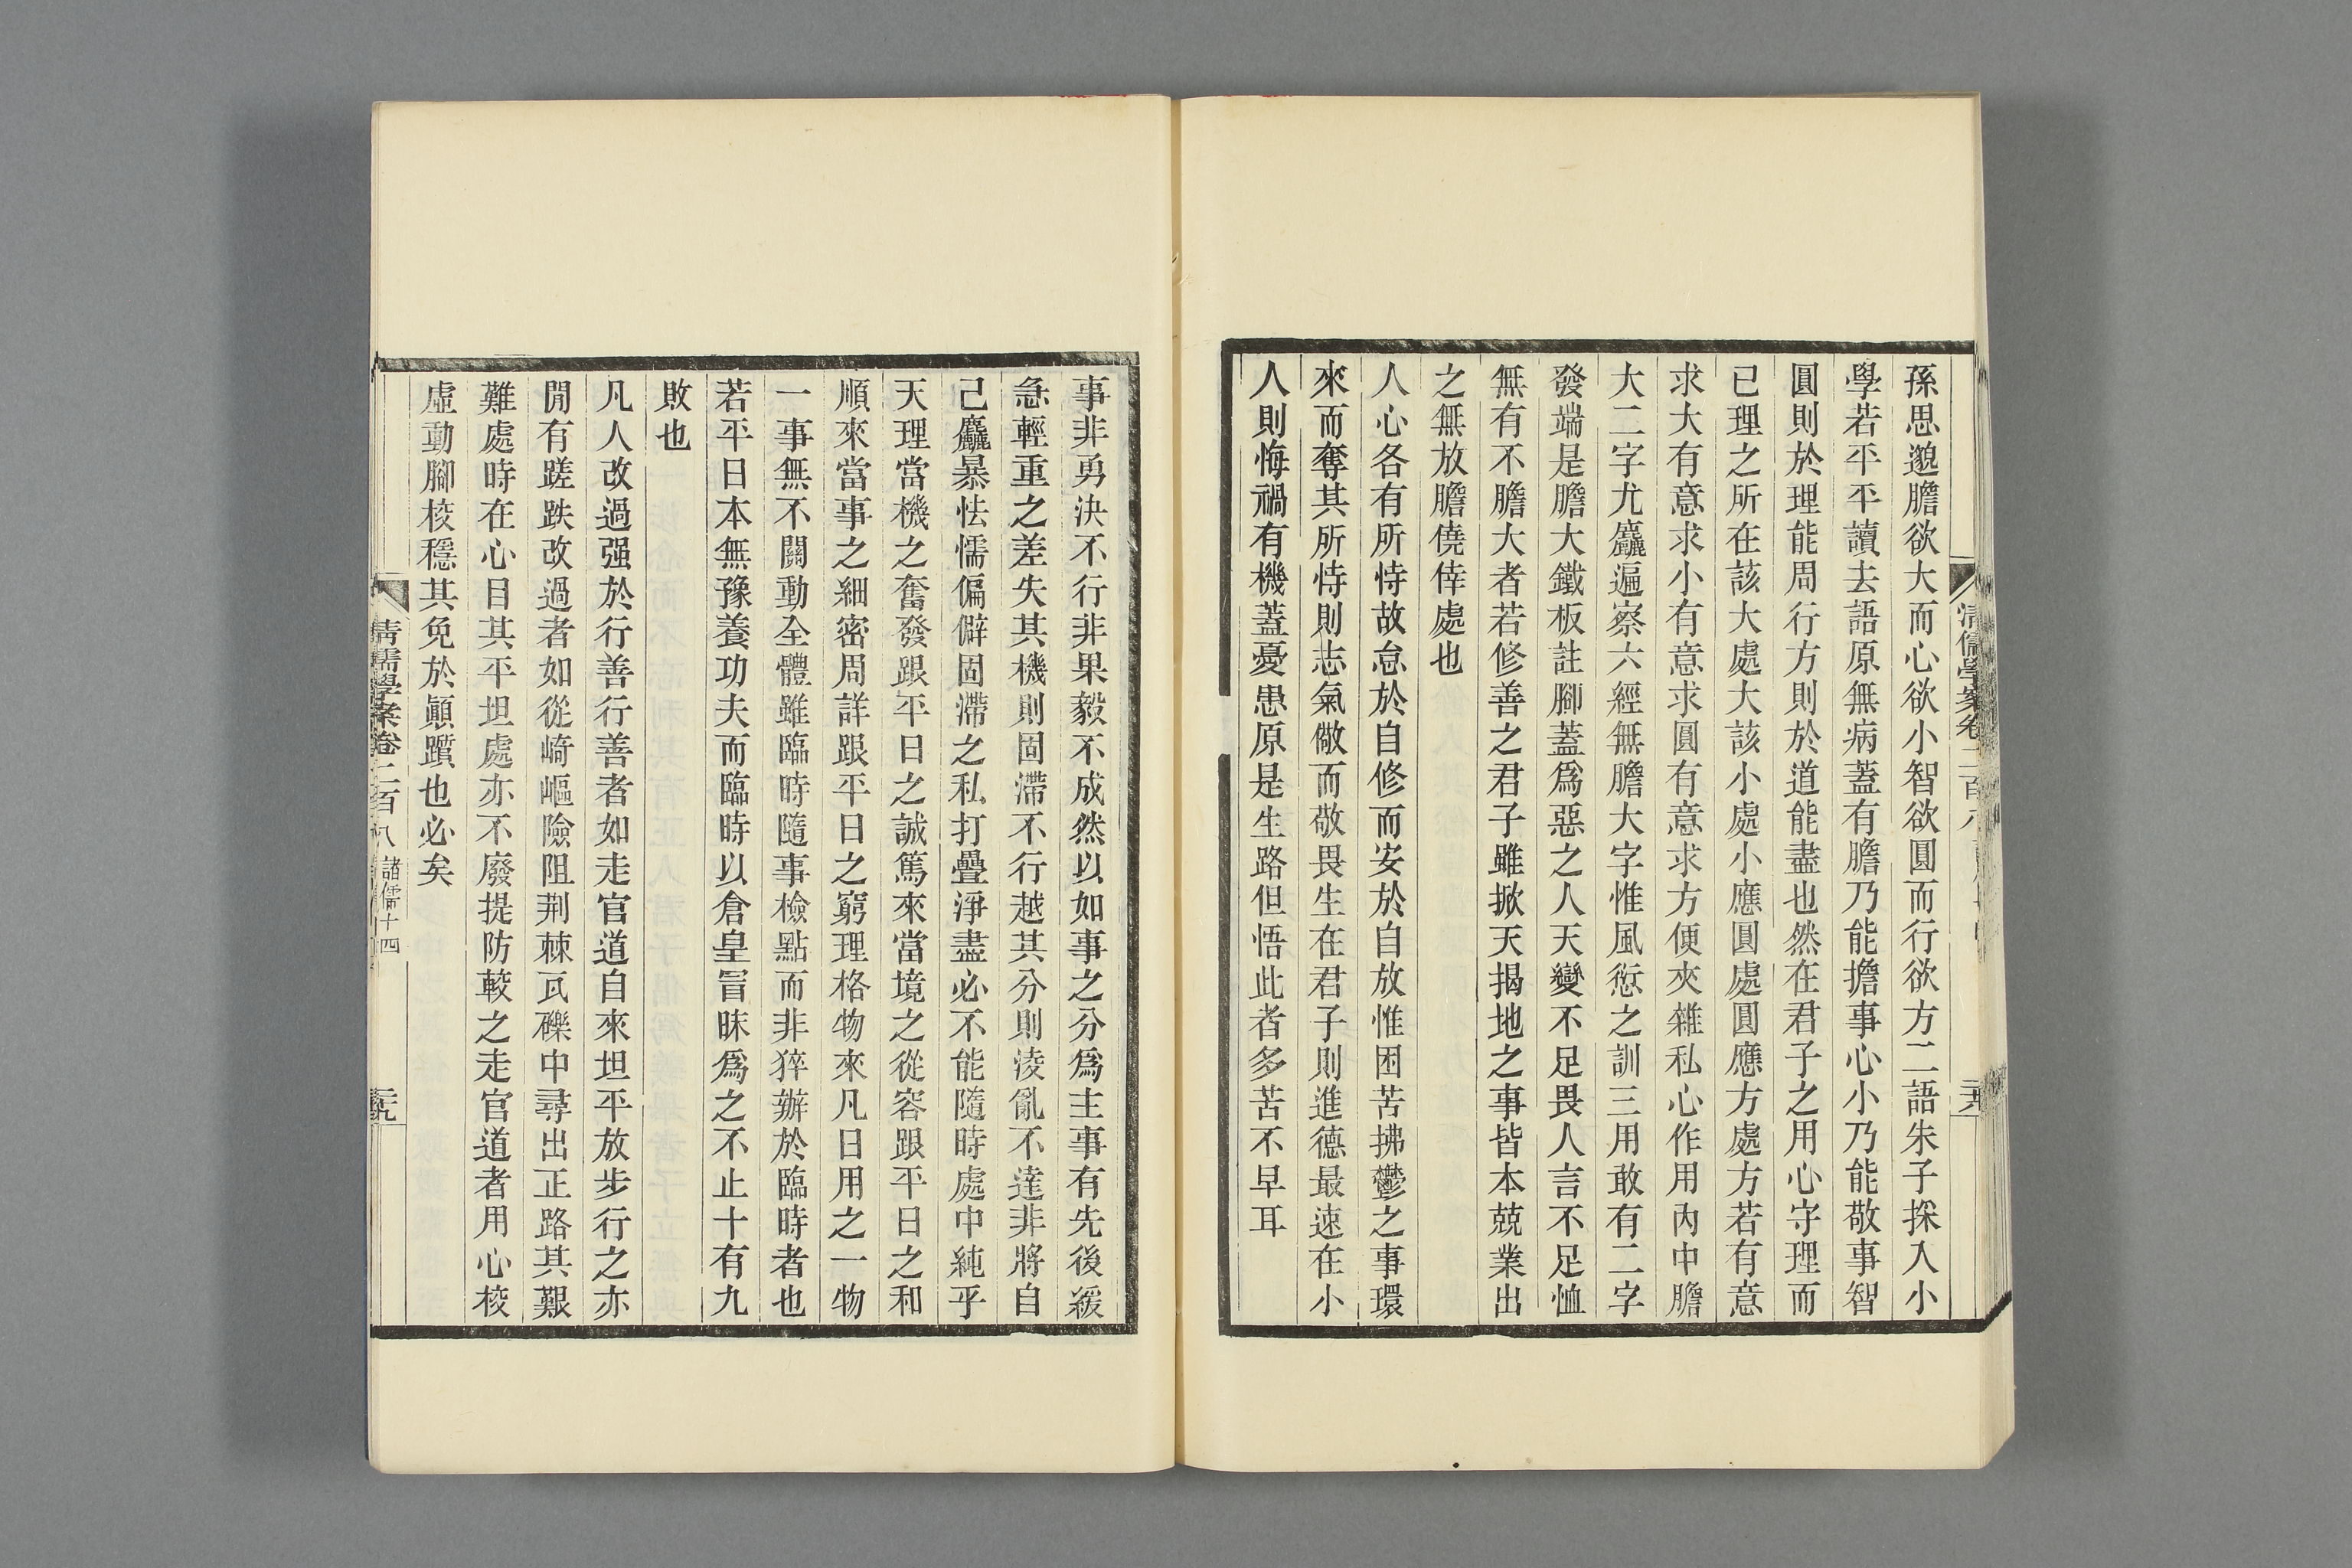 孫思邈膽欲大而心欲小智欲圓而行欲方二語朱子採入小
學若平平讀去語原無病蓋有膽乃能擔事心小乃能敬事智
圓則於理能周行方則於道能盡也然在君子之用心守理而
已理之所在該大處大該小處小應圓處圓應方處方若有意
求大有意求小有意求圓有意求方便夾雜私心作用內中膽
大二字尤麤遍察六經無膽大字惟風愆之訓三用敢有二字
發端是膽大鐵板註腳蓋爲惡之人天變不足畏人言不足恤
無有不膽大者若修善之君子雖掀天揭地之事皆本兢業出
之無放膽僥倖處也
人心各有所恃故怠於自修而安於自放惟困苦拂鬱之事環
來而奪其所恃則志氣儆而敬畏生在君子則進德最速在小
人則悔禍有機蓋憂患原是生路但悟此者多苦不早耳
事非勇決不行非果毅不成然以如事之分爲主事有先後緩
急輕重之差失其機則固滯不行越其分則淩亂不達非將自
己麤暴怯懦偏僻固滯之私打疊淨盡必不能隨時處中純乎
天理當機之奮發跟平日之誠篤來當境之從容跟平日之和
順來當事之細密周詳跟平日之窮理格物來凡日用之一物
一事無不關動全體雖臨時隨事檢點而非猝辦於臨時者也
若平日本無豫養功夫而臨時以倉皇冒昧爲之不止十有九
敗也
凡人改過强於行善行善者如走官道自來坦平放步行之亦
閒有蹉跌改過者如從崎嶇險阻荆棘瓦礫中尋出正路其艱
難處時在心目其平坦處亦不廢提防較之走官道者用心梭
虛動腳梭穩其免於顚躓也必矣
清儒學案卷二百八 諸儒十四